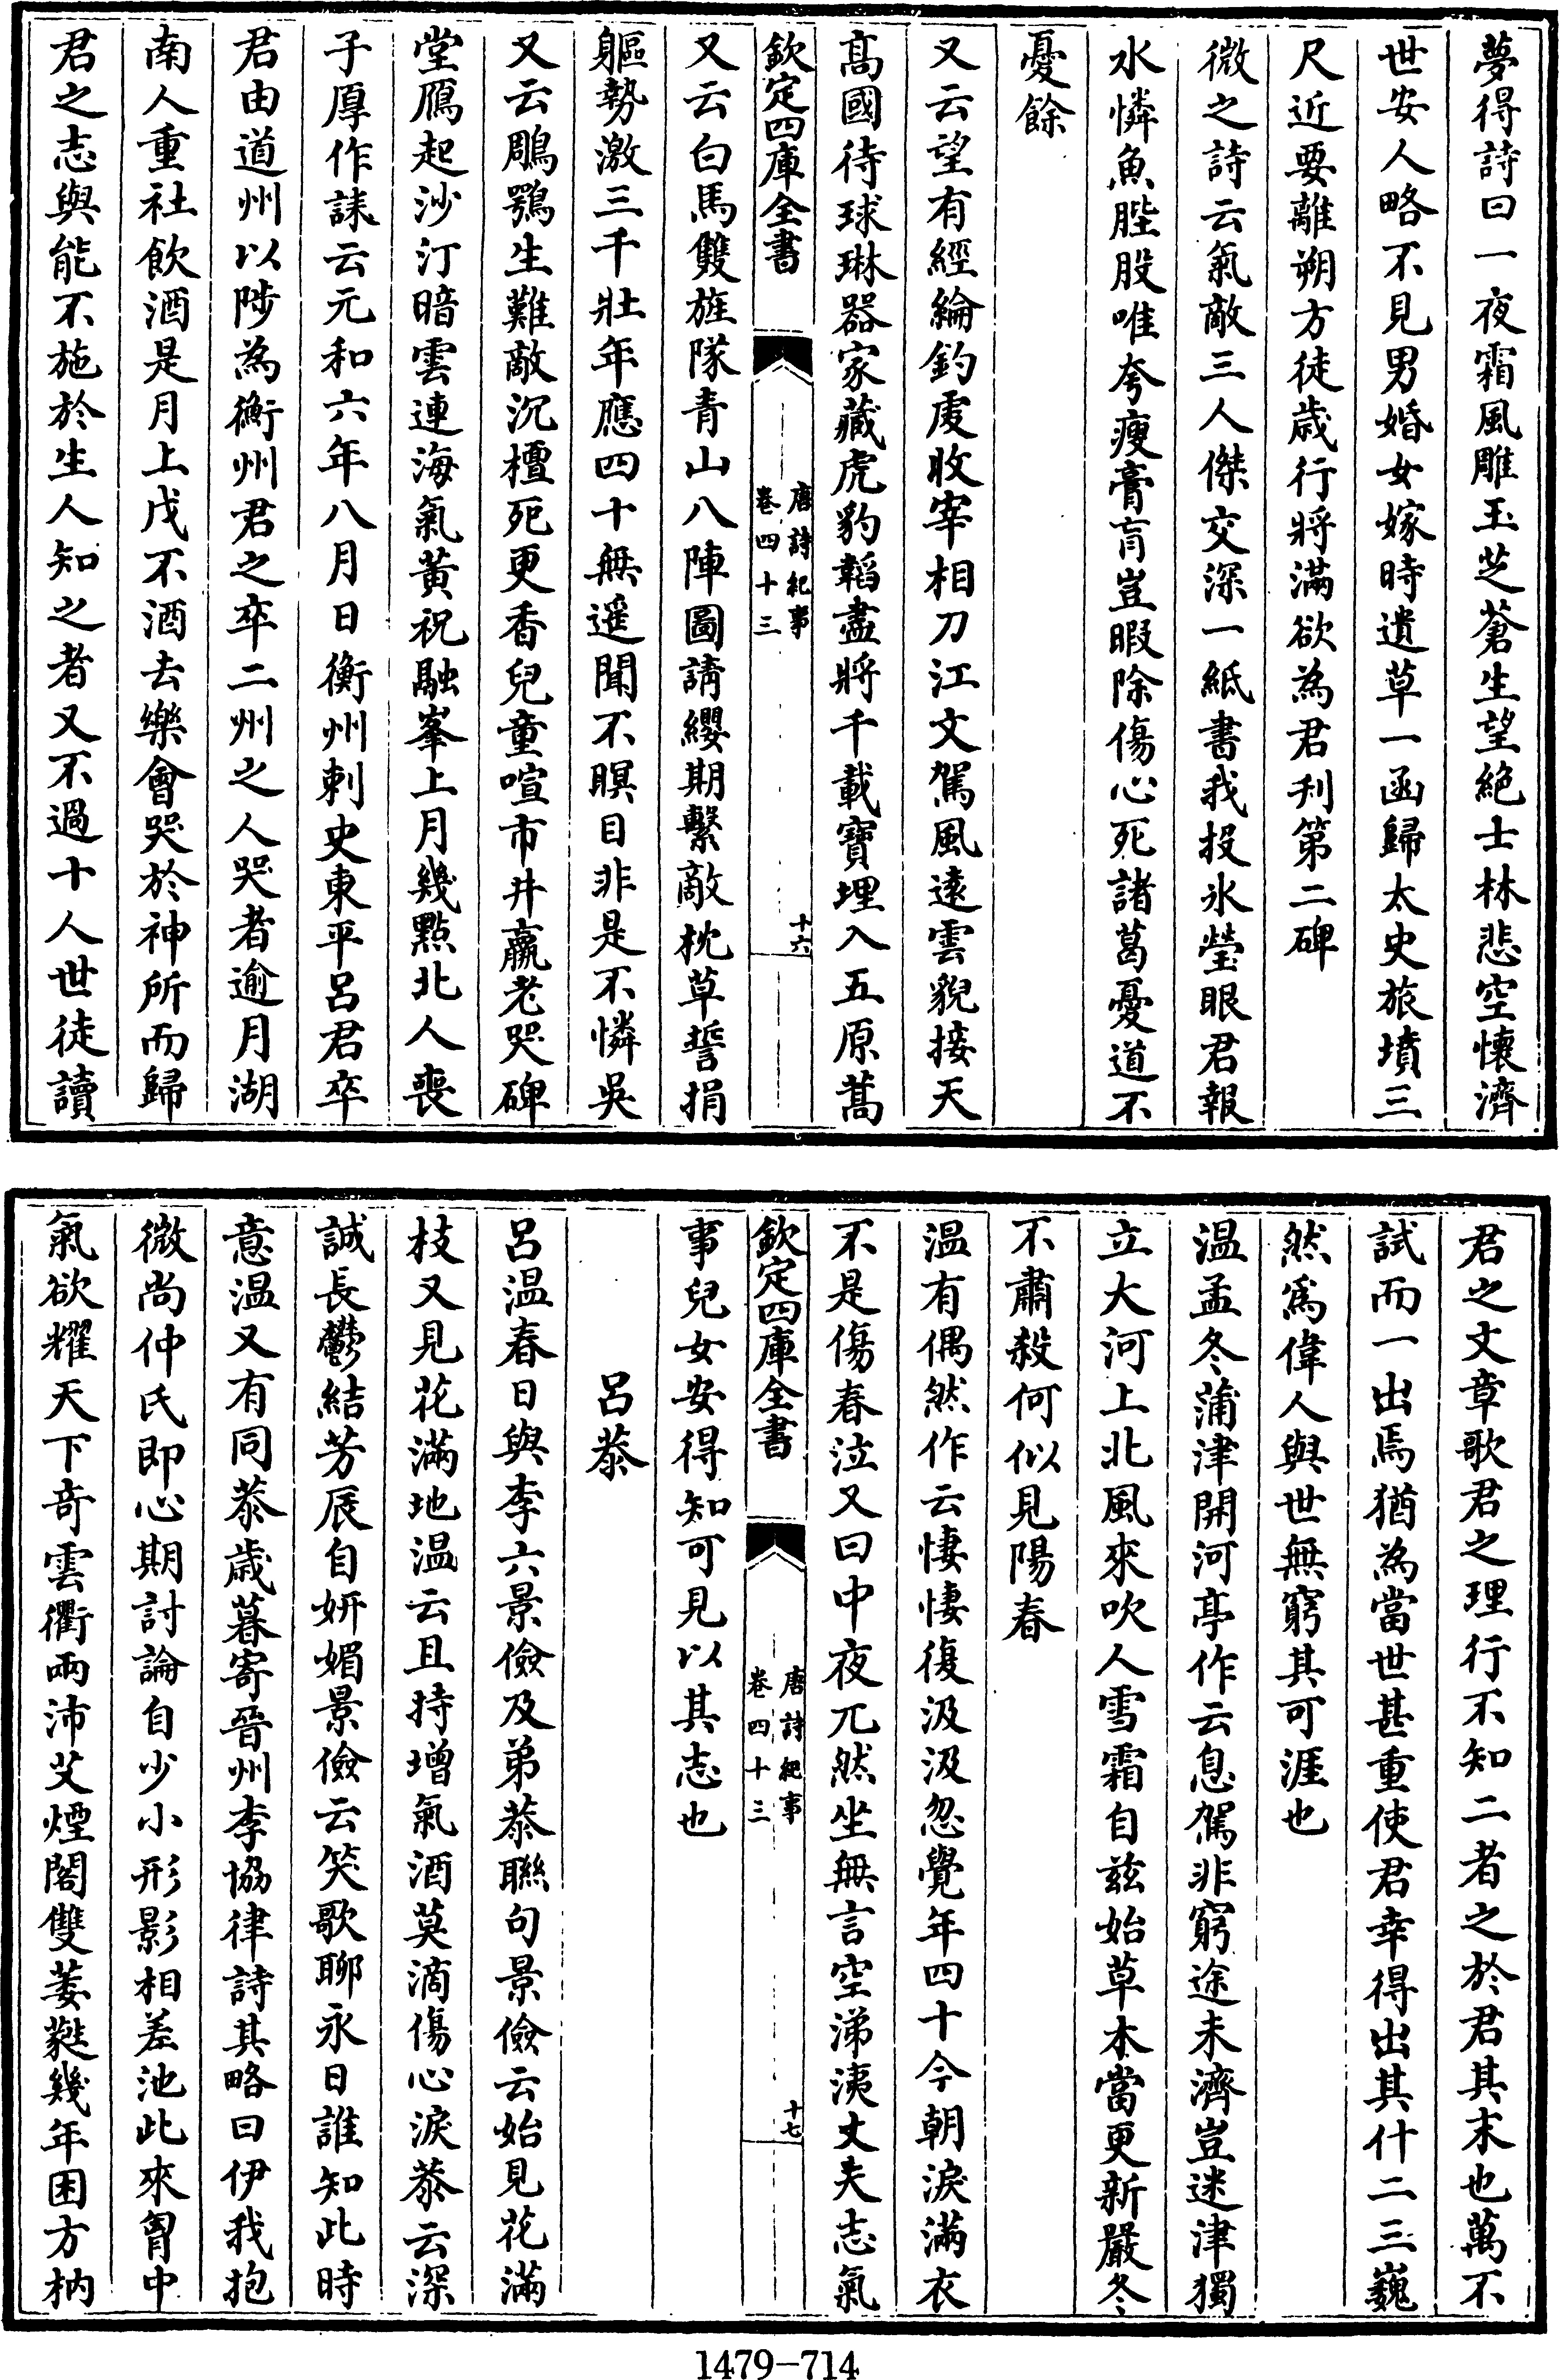 夢得詩曰一夜霜風雕玉芝蒼生望絕士林悲空懷濟
世安人略不見男婚女嫁時遺草一函歸太史旅墳三
尺近要離朔方徒歲行將滿欲為君刋第二碑
微之詩云氣敵三人傑交深一紙書我投氷瑩眼君報
水憐魚䏶股唯夸瘦膏肓豈暇除傷心死諸葛憂道不
憂餘
又云望有經綸釣虔收宰相刀江文駕風遠雲貌接天
髙國待球琳器家藏虎豹韜盡將千載寶埋入五原蒿
欽定四庫全書
唐詩紀事
卷四十三
十六
又云白馬雙旌隊青山八陣圖請纓期繫敵枕草誓捐
軀勢激三千壯年應四十無遥聞不瞑目非是不憐吳
又云鵰鶚生難敵沉檀死更香兒童喧市井羸老哭碑
堂鴈起沙汀暗雲連海氣黃祝融峯上月幾點北人喪
子厚作誄云元和六年八月日衡州刺史東平呂君卒
君由道州以陟為衡州君之卒二州之人哭者逾月湖
南人重社飲酒是月上戊不酒去樂會哭於神所而歸
君之志與能不施於生人知之者又不過十人世徒讀
君之文章歌君之理行不知二者之於君其末也萬不
試而一出焉猶為當世甚重使君幸得出其什二三巍
然爲偉人與世無窮其可涯也
温孟冬蒲津開河亭作云息駕非窮途未濟豈迷津獨
立大河上北風來吹人雪霜自兹始草木當更新嚴冬
不肅殺何似見陽春
温有偶然作云悽悽復汲汲忽覺年四十今朝淚滿衣
不是傷春泣又曰中夜兀然坐無言空涕洟丈夫志氣
欽定四庫全書
唐詩紀事
卷四十三
十七
事兒女安得知可見以其志也
呂恭
呂温春日與李六景儉及弟恭聯句景儉云始見花滿
枝又見花滿地温云且持增氣酒莫滴傷心淚恭云深
誠長鬱結芳辰自姸媚景儉云笑歌聊永日誰知此時
意温又有同恭歲暮寄晉州李協律詩其略曰伊我抱
微尚仲氏即心期討論自少小形影相差池此來胷中
氣欲耀天下竒雲衢兩沛艾煙閣雙萎蕤幾年困方枘
1479-714